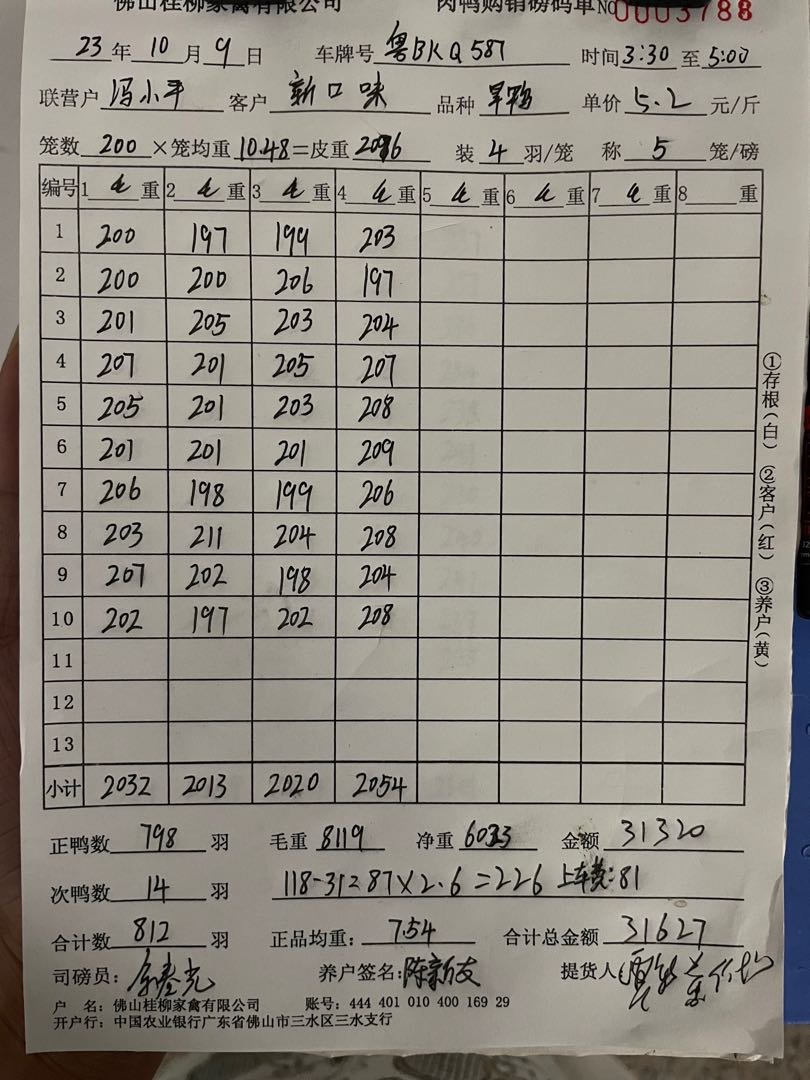 佛山桂柳家禽有限公司 肉鸭购销磅码单 No 0003788
23 年 10 月 9 日 车牌号 粤BKQ587 时间 3:30 至 5:00
联营户 冯小平 客户 新口味 品种 旱鸭 单价 5.2 元/斤
笼数 200 ×笼均重 10.48 =皮重 2096 装 4 羽/笼 称 5 笼/磅
编号 1 重 2 重 3 重 4 重 5 重 6 重 7 重 8 重
1 200 197 199 203
2 200 200 206 197
3 201 205 203 204
4 207 201 205 207
5 205 201 203 208
6 201 201 201 209
7 206 198 199 206
8 203 211 204 208
9 207 202 198 204
10 202 197 202 208
11
12
13
小计 2032 2013 2020 2054
正鸭数 798 羽 毛重 8119 净重 6023 金额 31320
次鸭数 14 羽 118-31=87×2.6=226 上车费:81
合计数 812 羽 正品均重: 7.54 合计总金额 31627
司磅员: 养户签名: 陈新友 提货人
户 名: 佛山桂柳家禽有限公司 账号: 444 401 010 400 169 29
开户行: 中国农业银行广东省佛山市三水区三水支行
①存根(白) ②客户(红) ③养户(黄)